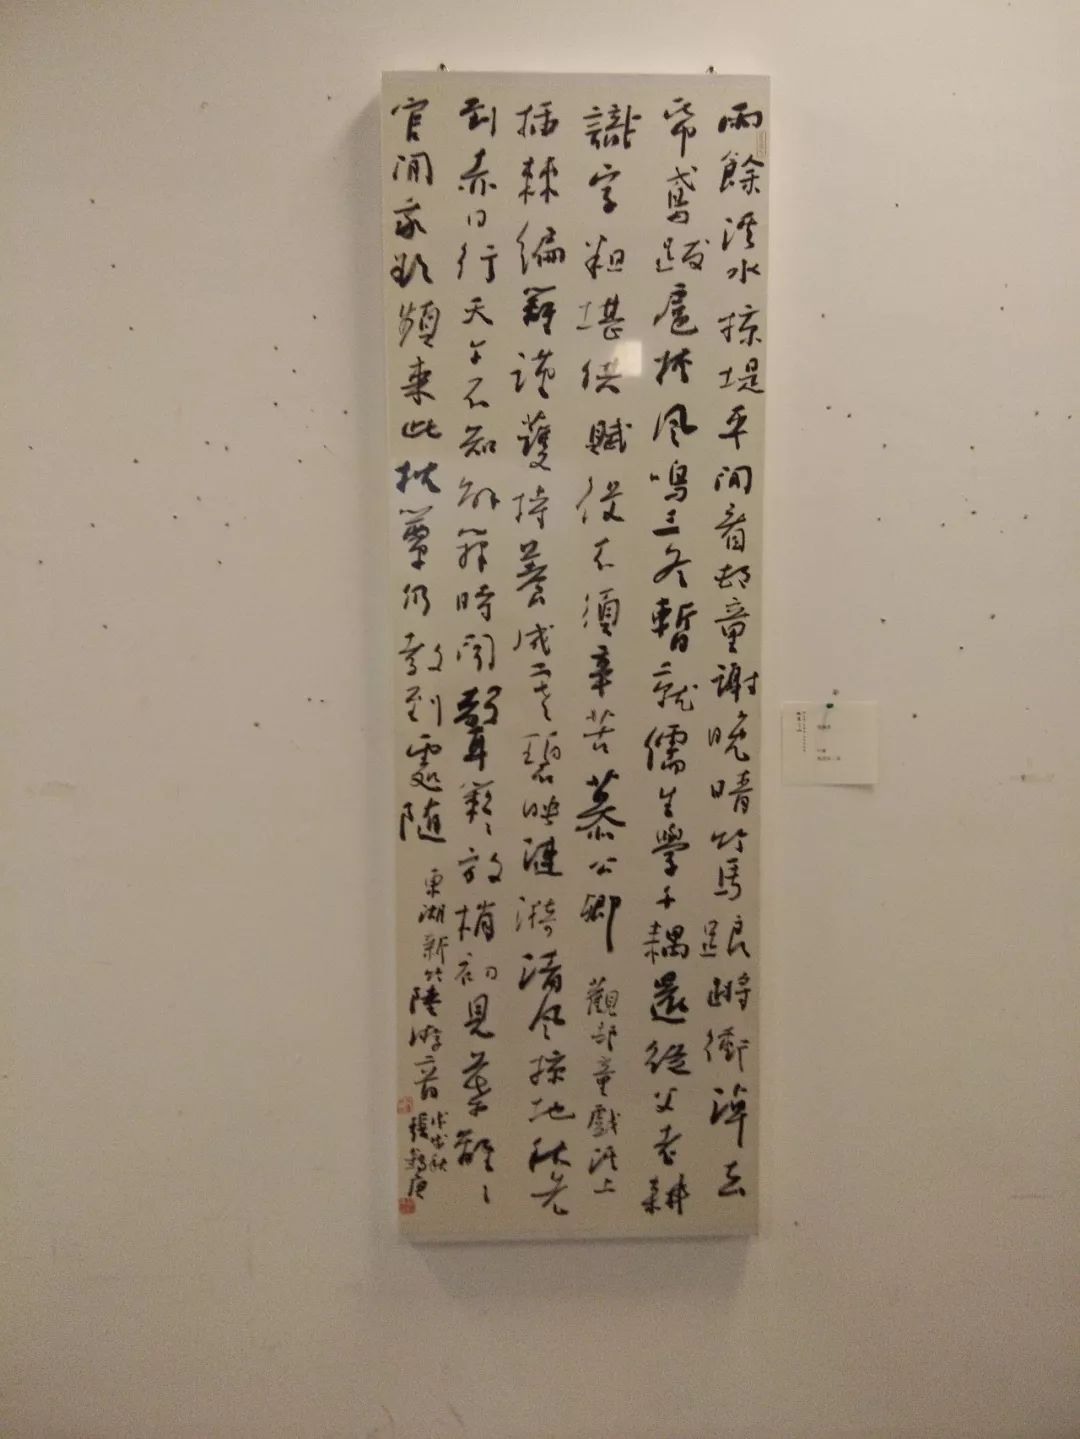 雨餘溪水掠堤平閒看邨童謝晚晴竹馬踉蹡衝淖去
帋鳶跋扈挾風鳴三冬暫就儒生學千耦還從父老耕
識字粗堪供賦役不須辛苦慕公卿 觀邨童戲溪上
插棘編籬謹護持養成寒碧映漣漪清風掠地秋先
到赤日行天午不知解籜時聞聲簌〻放梢初見葉離〻
官閒我欲頻來此枕簟仍教到處隨
東湖新竹陸游
戊戌秋
張